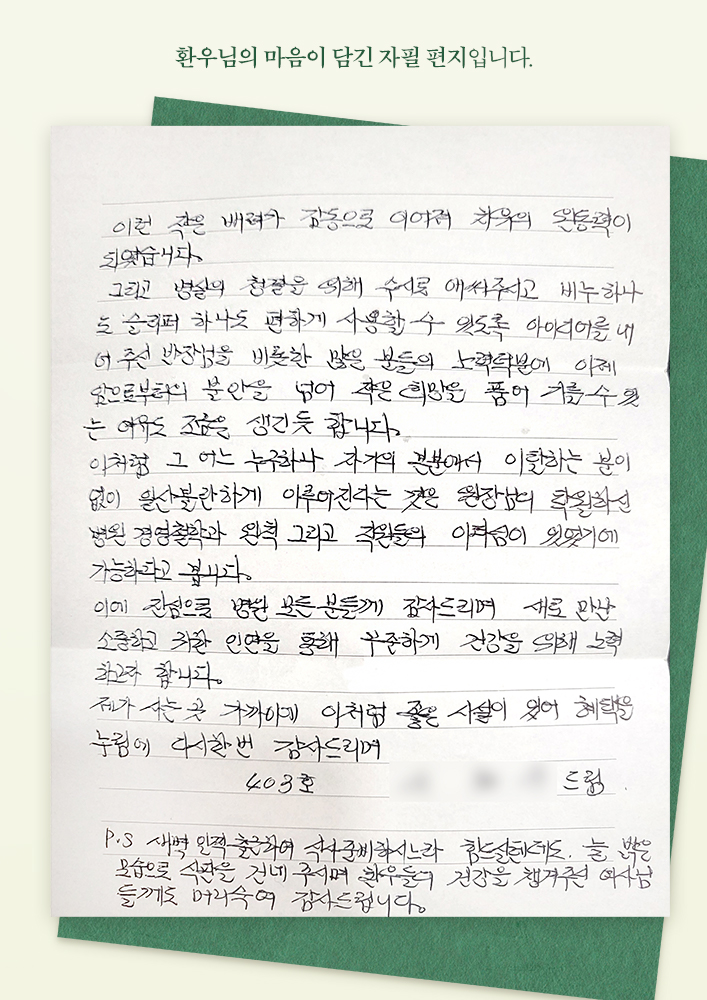 환우님의 마음이 담긴 자필 편지입니다.
이런 작은 배려가 감동으로 이어져 치유의 원동력이
되었습니다.
그리고 병실의 청결을 위해 수시로 애써주시고 비누하나
도 슬리퍼 하나도 편하게 사용할 수 있도록 아이디어를 내
어 주신 반장님을 비롯한 많은 분들의 노력덕분에 이제
앞으로부터의 불안을 넘어 작은 희망을 품어 키울 수 있
는 여유도 조금은 생긴듯 합니다.
이처럼 그 어느 누구하나 자기의 본분에서 이탈하는 분이
없이 일산불란하게 이루어진다는 것은 원장님의 확실하신
병원 경영철학과 원칙 그리고 직원들의 이 있었기에
가능하다고 봅니다.
이에 진심으로 병원 모든분들께 감사드리며 새로 만난
소중하고 귀한 인연을 통해 꾸준하게 건강을 위해 노력
하고자 합니다.
제가 사는 곳 가까이에 이처럼 좋은 시설이 있어 혜택을
누림에 다시한번 감사드리며
403호 드림.
P.S 새벽 일찍 출근하여 식사준비하시느라 힘드실텐데도. 늘 밝은
모습으로 식판을 건네 주시며 환우들의 건강을 챙겨주신 여사님
들께도 머리숙여 감사드립니다.